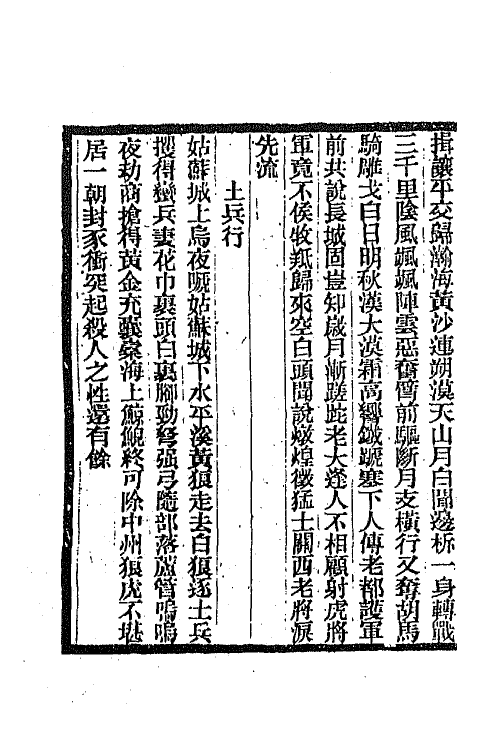 揖讓平交歸瀚海黃沙連朔漠天山月白聞邊柝一身轉戰
三千里陰風颯颯陣雲惡奮臂前驅斷月支橫行又奪胡馬
騎雕戈白日明秋漢大漠霜高響鐵蹏塞下人傳老都護軍
前共說長城固豈知歲月漸蹉跎老大逢人不相顧射虎將
軍竟不侯牧羝歸來空白頭聞說燉煌徵猛士關西老將淚
先流
土兵行
姑蘇城上烏夜嗁姑蘇城下水平溪黃狼走去白狼逐土兵
攫得蠻兵妻花巾裹頭白裹腳勁弩强弓隨部落蘆管嗚嗚
夜劫商搶得黃金充囊橐海上鯨鯢終可除中州狼虎不堪
居一朝封豕衝突起殺人之性還有餘